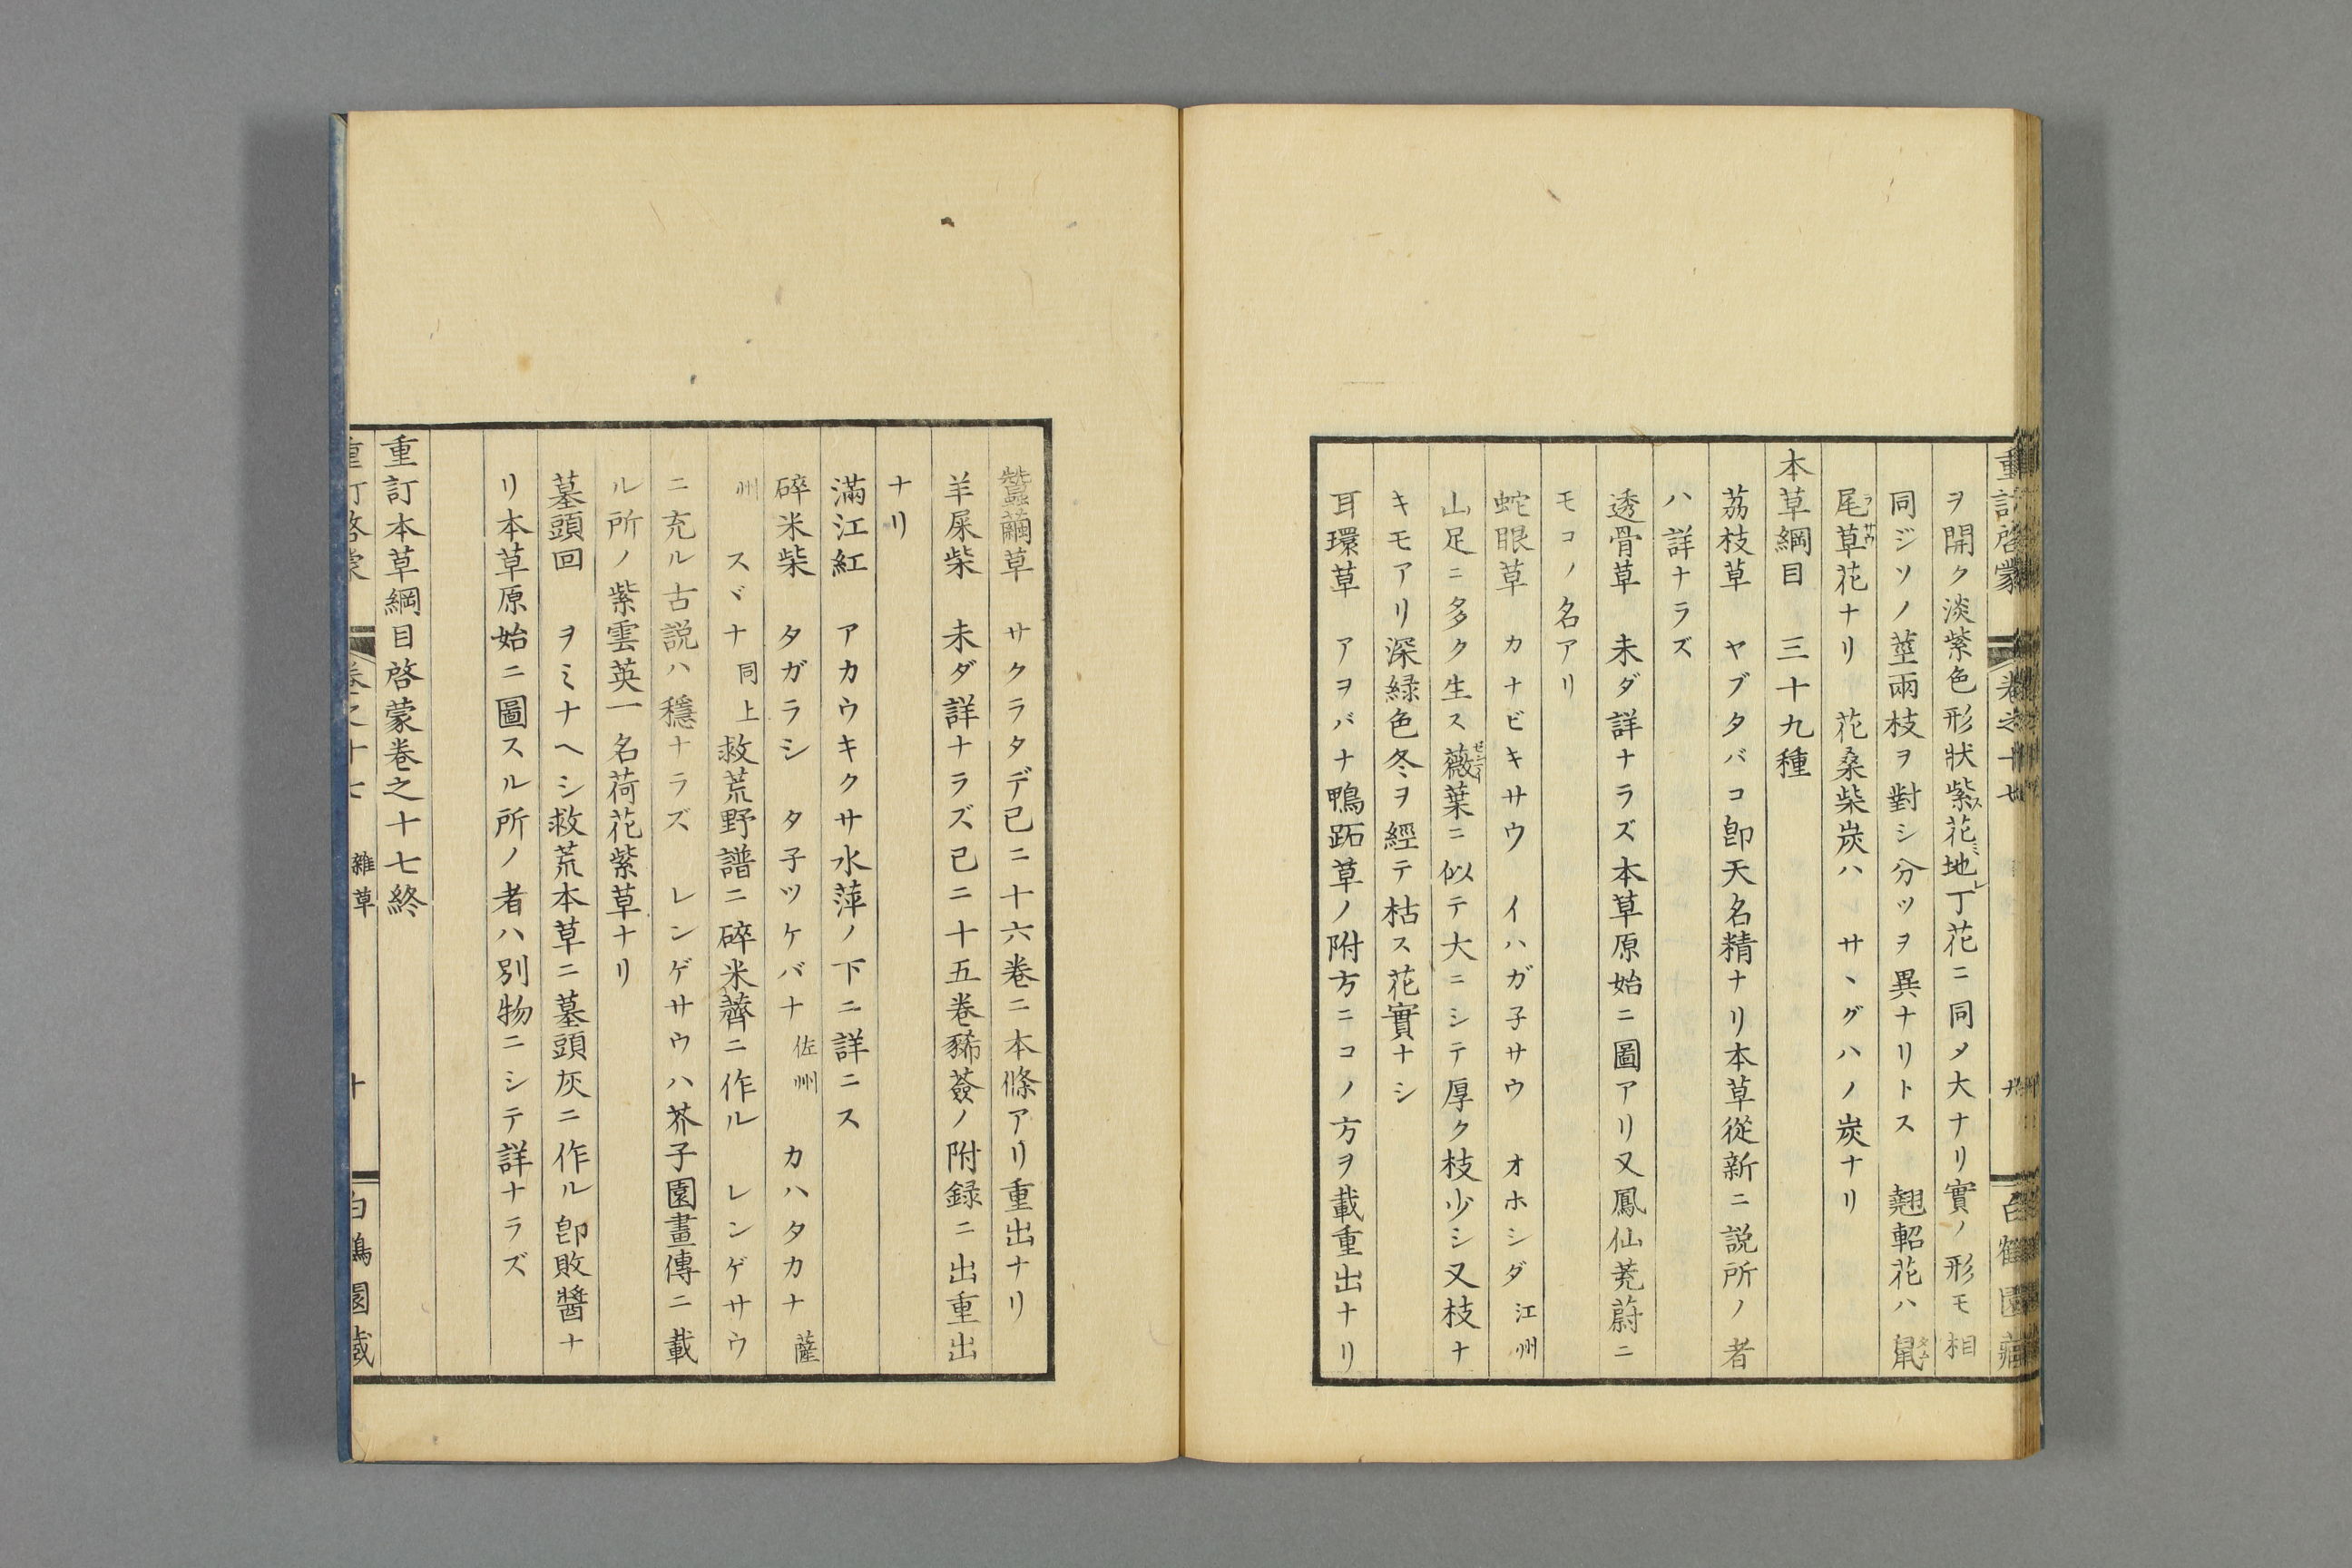 重訂啓蒙 卷之十七 九 白鶴園藏
ヲ開ク淡紫色形狀紫花地丁花ニ同メ大ナリ實ノ形モ相
同ジソノ莖兩枝ヲ對シ分ツヲ異ナリトス 翹軺花ハ鼠
尾草花ナリ 花桑柴炭ハ サヽグハノ炭ナリ
本草綱目 三十九種
茘枝草 ヤブタバコ卽天名精ナリ本草從新ニ説所ノ者
ハ詳ナラズ
透骨草 未ダ詳ナラズ本草原始ニ圖アリ又鳳仙茺蔚ニ
モコノ名アリ
蛇眼草 カナビキサウ イハガ子サウ オホシダ江州
山足ニ多ク生ス薇葉ニ似テ大ニシテ厚ク枝少シ又枝ナ
キモアリ深緑色冬ヲ經テ枯ス花實ナシ
耳環草 アヲバナ鴨跖草ノ附方ニコノ方ヲ載重出ナリ
蠶繭草 サクラタデ已ニ十六巻ニ本條アリ重出ナリ
羊屎柴 未ダ詳ナラズ已ニ十五巻豨薟ノ附録ニ出重出
ナリ
滿江紅 アカウキクサ水萍ノ下ニ詳ニス
碎米柴 タガラシ タ子ツケバナ佐州 カハタカナ薩
州 スヾナ同上救荒野譜ニ碎米薺ニ作ル レンゲサウ
ニ充ル古説ハ穩ナラズ レンゲサウハ芥子園畫傳ニ載
ル所ノ紫雲英一名荷花紫草ナリ
墓頭回 ヲミナヘシ救荒本草ニ墓頭灰ニ作ル卽敗醬ナ
リ本草原始ニ圖スル所ノ者ハ別物ニシテ詳ナラズ
重訂本草綱目啓蒙巻之十七終
重訂啓蒙 卷之十七 雜草 十 白鶴園藏